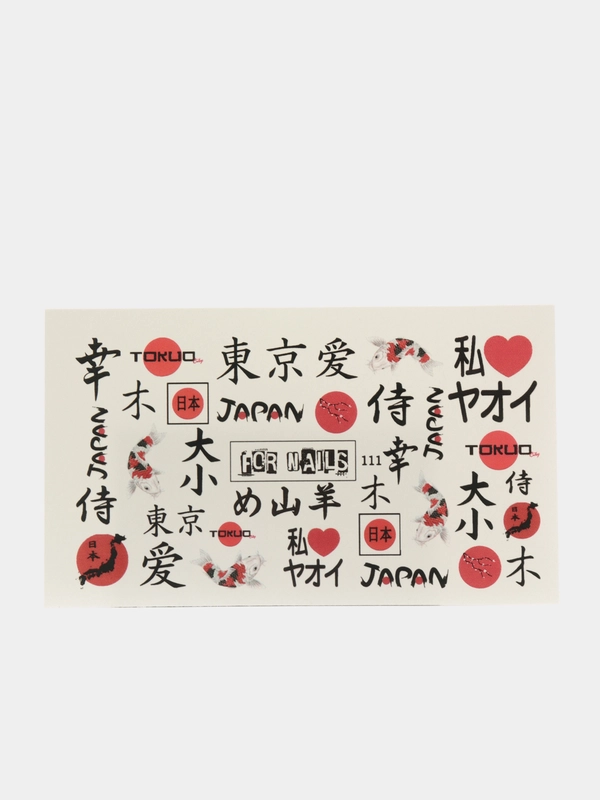 幸
TOKUO
東京愛
私
ヤオイ
木
日本
JAPAN
侍
JAPAN
JAPAN
大小
FOR NAILS
111
幸
TOKUO
侍
東京
め山羊
木
大小
侍
日本
愛
TOKUO
私
ヤオイ
日本
JAPAN
木